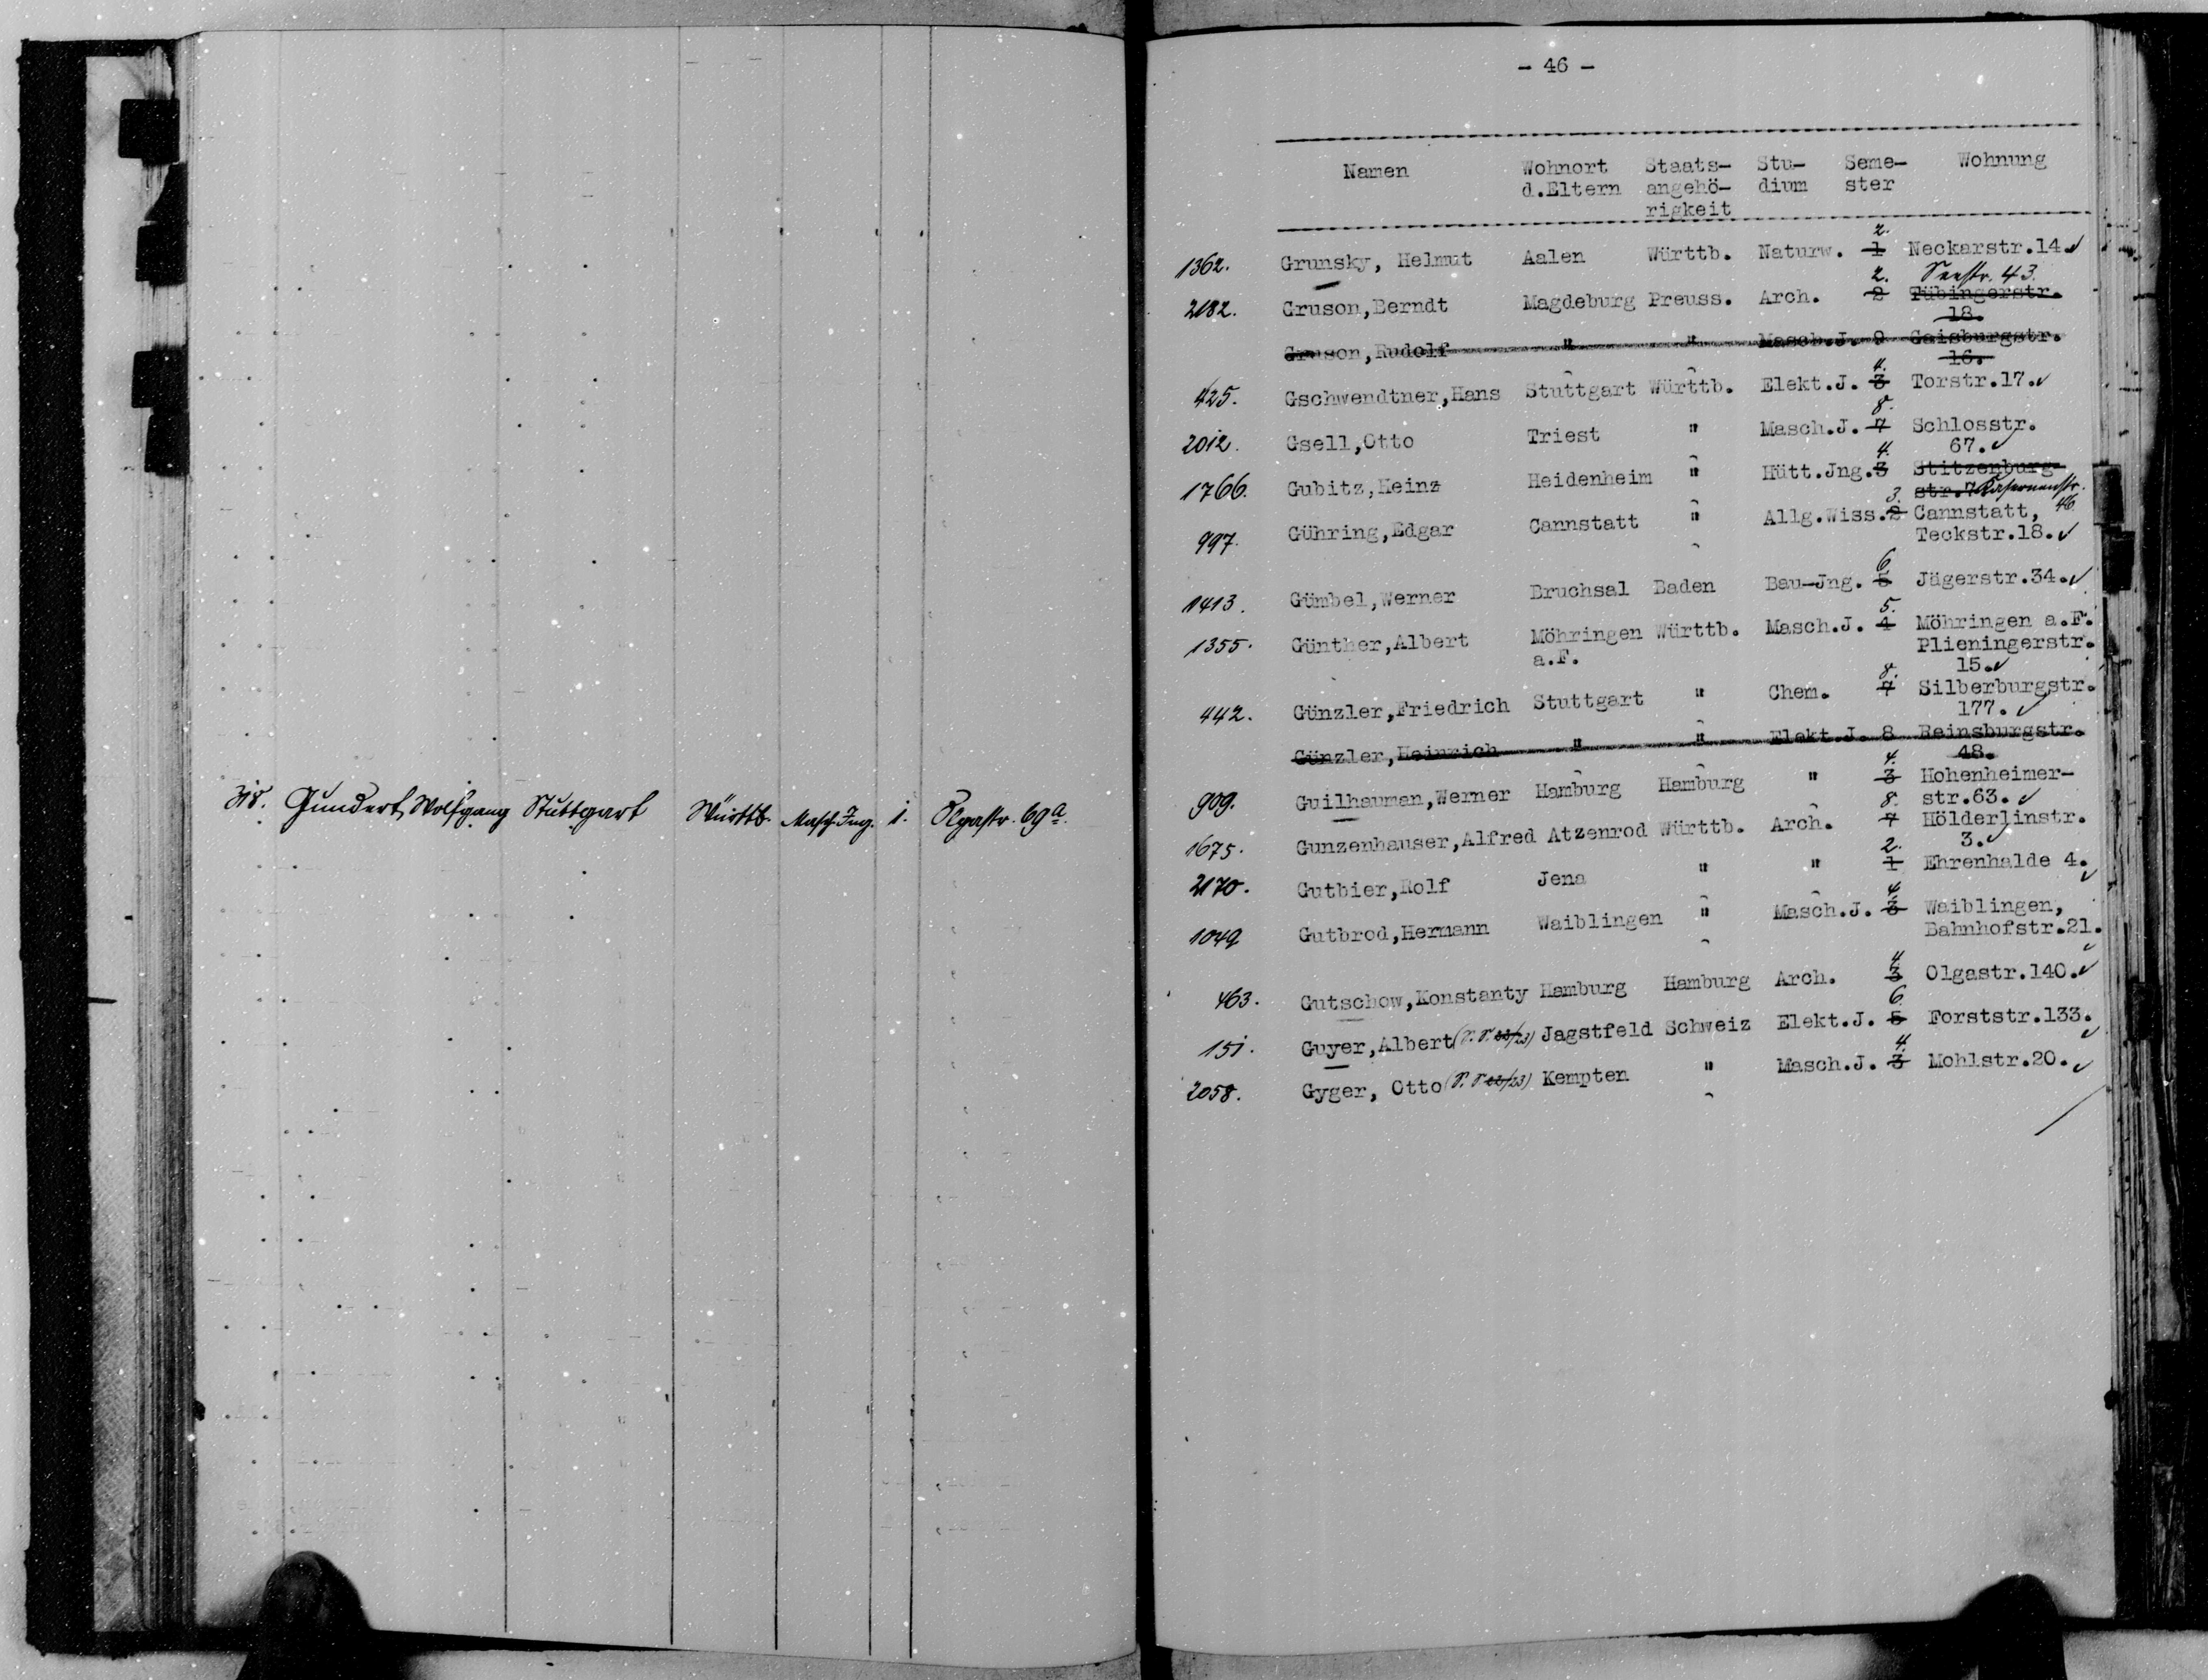 318. Gundert, Wolfgang Stuttgart Württb. Masch. Ing. 1. Olgastr. 69a.
- 46 -
Namen Wohnort Staats- Stu- Seme- Wohnung
d.Eltern angehö- dium ster
rigkeit
2.
1362. Grunsky, Helmut Aalen Württb. Naturw. 1 Neckarstr.14.
2. Seestr. 43.
2182. Gruson,Berndt Magdeburg Preuss. Arch. 2 Tübingerstr.
18.
Gruson,Rudolf " " Masch.J. 9 Gaisburgstr.
16.
4.
425. Gschwendtner,Hans Stuttgart Württb. Elekt.J. 3 Torstr.17.
8.
2012. Gsell,Otto Triest " Masch.J. 7 Schlosstr.
4. 67.
1766. Gubitz,Heinz Heidenheim " Hütt.Jng.3 Stitzenburg-
str.7 Kasernenstr.
3. 46.
997. Gühring,Edgar Cannstatt " Allg.Wiss.2 Cannstatt,
Teckstr.18.
6
1413. Gümbel,Werner Bruchsal Baden Bau-Jng. 5 Jägerstr.34.
5.
1355. Günther,Albert Möhringen Württb. Masch.J. 4 Möhringen a.F.
a.F. Plieningerstr.
15.
8.
442. Günzler,Friedrich Stuttgart " Chem. 7 Silberburgstr.
177.
Günzler,Heinrich " " Elekt.J. 8 Reinsburgstr.
48.
4.
909. Guilhauman,Werner Hamburg Hamburg " 3 Hohenheimer-
8. str.63.
1675. Gunzenhauser,Alfred Atzenrod Württb. Arch. 7 Hölderlinstr.
2. 3.
2170. Gutbier,Rolf Jena " " 1 Ehrenhalde 4.
4.
1049 Gutbrod,Hermann Waiblingen " Masch.J. 3 Waiblingen,
Bahnhofstr.21.
4
463. Gutschow,Konstanty Hamburg Hamburg Arch. 3 Olgastr.140.
6.
151. Guyer,Albert Jagstfeld Schweiz Elekt.J. 5 Forststr.133.
4.
2058. Gyger, Otto Kempten " Masch.J. 3 Mohlstr.20.